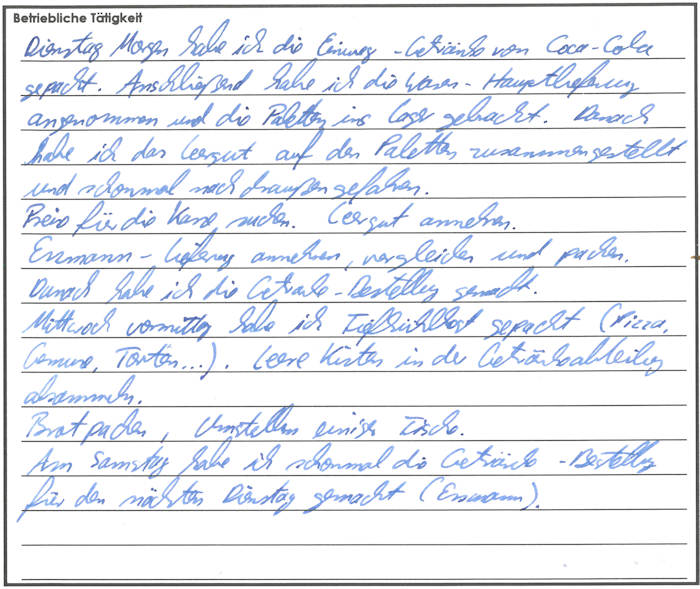 Betriebliche Tätigkeit
Dienstag Morgen habe ich die Einweg-Getränke von Coca-Cola
gepackt. Anschließend habe ich die Waren-Hauptlieferung
angenommen und die Paletten ins Lager gebracht. Danach
habe ich das Leergut auf den Paletten zusammengestellt
und schonmal nach draußen gefahren.
Preise für die Kasse suchen. Leergut annehmen.
Lieferung annehmen, vergleichen und packen.
Danach habe ich die Getränke-Bestellung gemacht.
Mittwoch vormittag habe ich Tiefkühlkost gepackt (Pizza,
Gemüse, Torten...). Leere Kisten in der Getränkeabteilung
absammeln.
Brot packen, Umstellen einiger Tische.
Am Samstag habe ich schonmal die Getränke-Bestellung
für den nächsten Dienstag gemacht